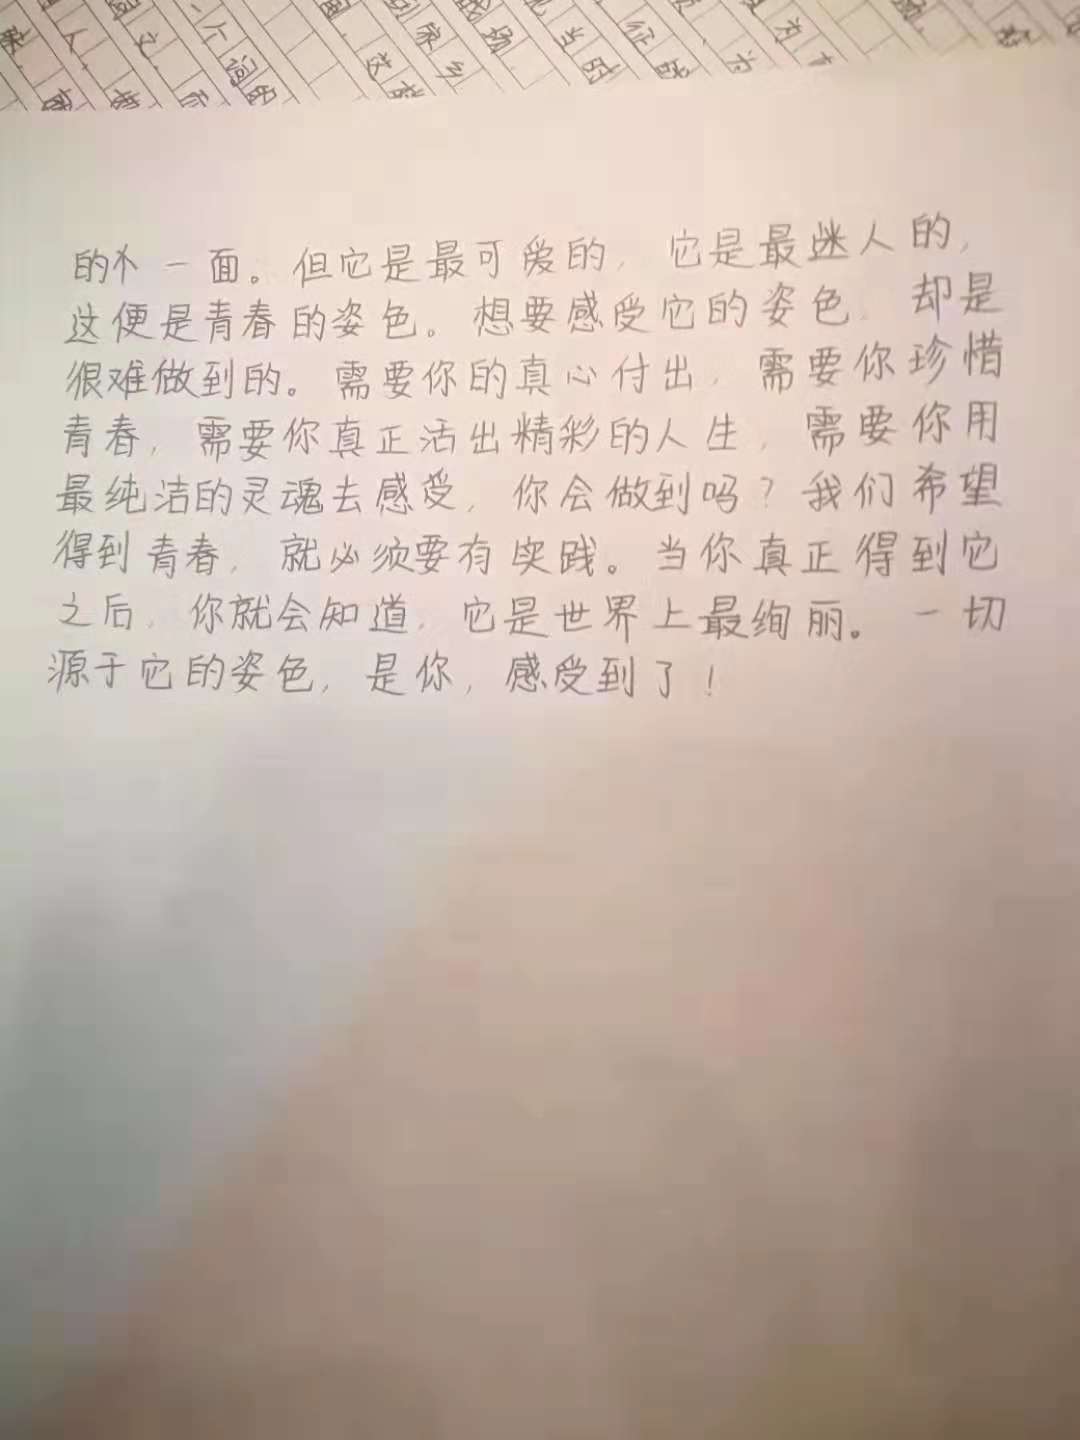 的个一面。但它是最可爱的，它是最迷人的，
这便是青春的姿色。想要感受它的姿色，却是
很难做到的。需要你的真心付出，需要你珍惜
青春，需要你真正活出精彩的人生，需要你用
最纯洁的灵魂去感受，你会做到吗？我们希望
得到青春，就必须要有实践。当你真正得到它
之后，你就会知道，它是世界上最绚丽。一切
源于它的姿色，是你，感受到了！